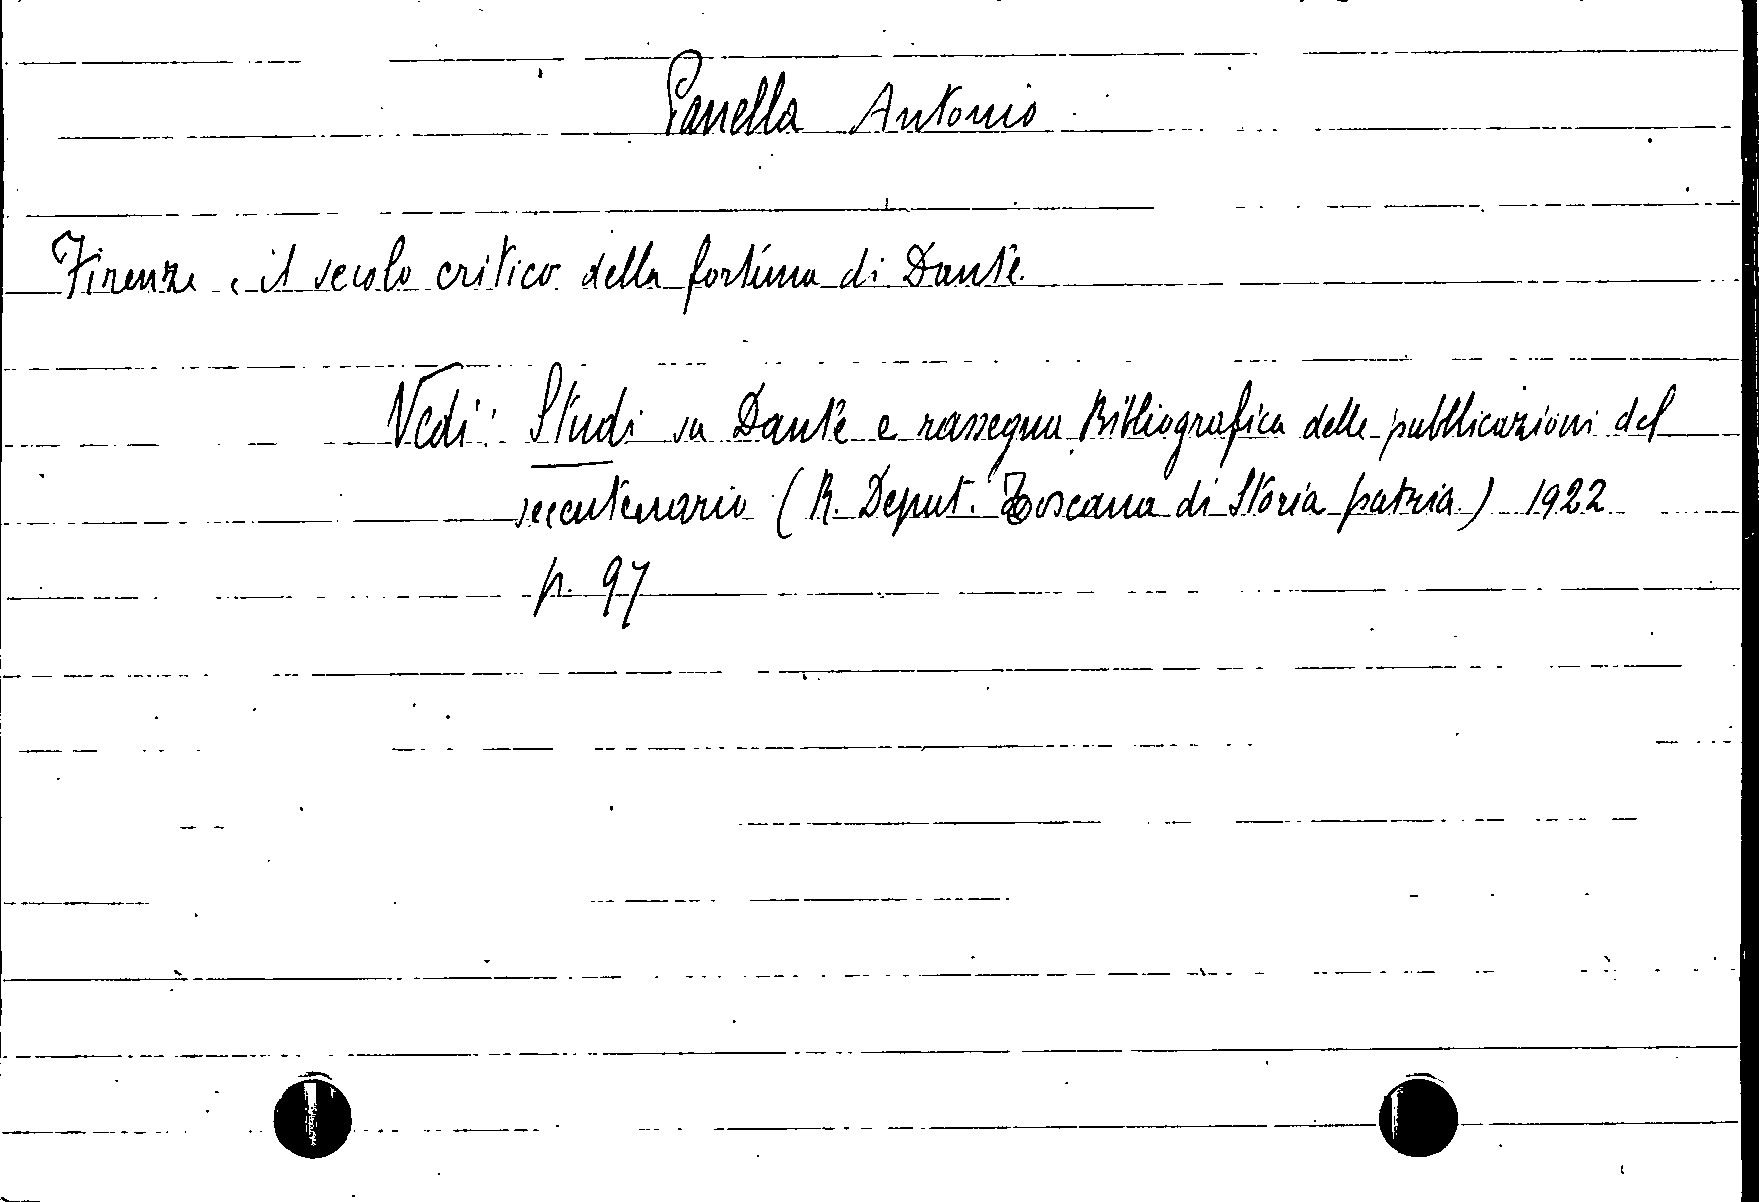 Panella Antonio
Firenze e il secolo critico della fortuna di Dante.
Vedi: Studi su Dante e rassegna bibliografica delle pubblicazioni del
secentenario (R. Deput. Toscana di Storia patria) 1922
p. 97